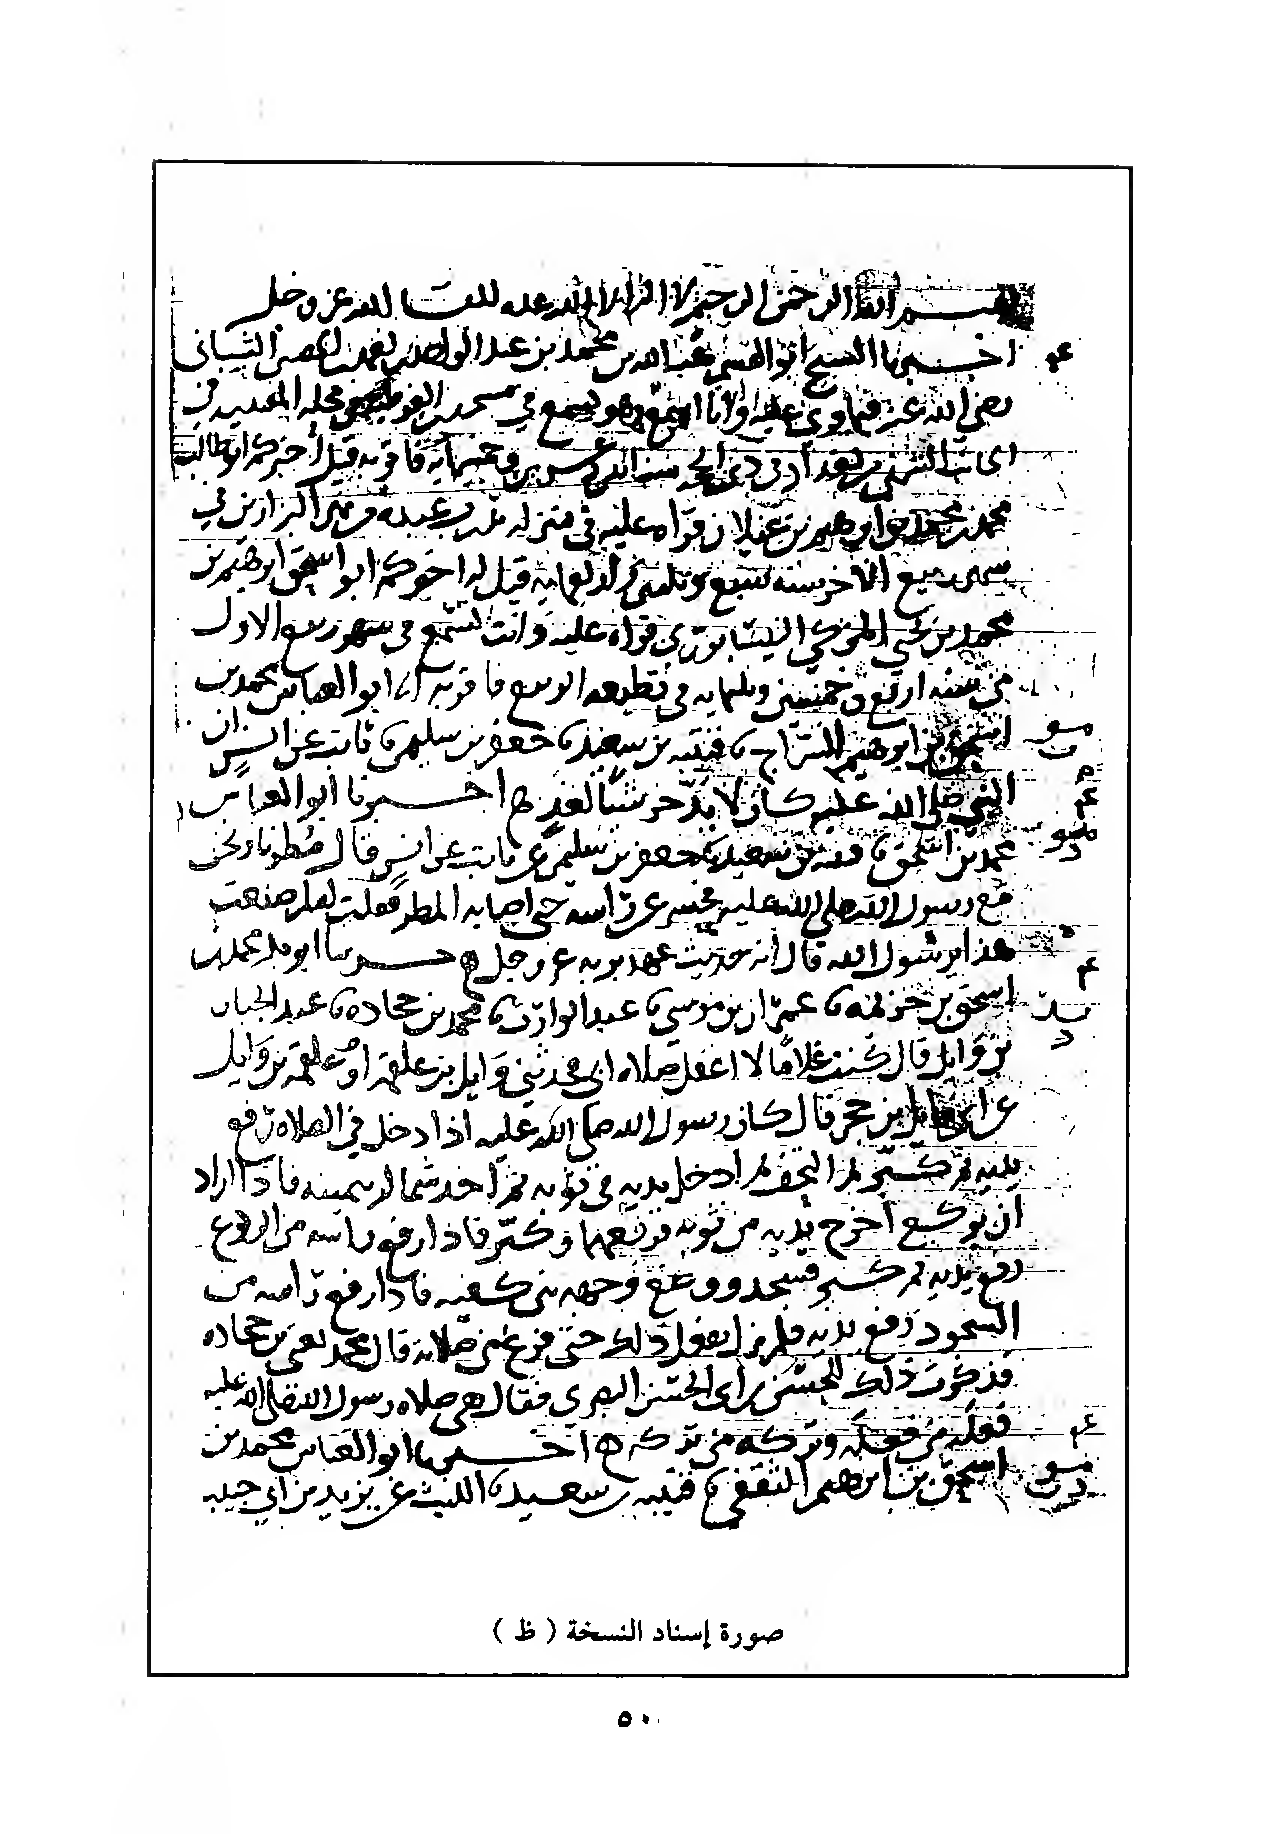 بسم الله الرحمن الرحيم لا اله الا الله عده للقا الله عز وجل
اخبرنا الشيخ ابو القسم هبة الله بن محمد بن عبد الواحد بن الحصين الشيباني
رضي الله عنه فيما قرئ عليه وانا اسمع وهو يسمع في مسجد محله
الجانب الشرقي بغداد في ذي الحجه سنة وخمسمايه فاقر به قيل اخبركم ابو طالب
محمد بن محمد بن ابرهيم بن غيلان قراه عليه في منزله بدرب عبده في
ربيع الاخر سنه سبع وثلثين واربعمايه قيل له اخبركم ابو اسحق ابرهيم بن
محمد بن يحيى المزكي النيسابوري قراه عليه وانت تسمع في شهر ربيع الاول
من سنه اربع وخمسين وثلثمايه في قطيعه الربيع فاقر به ابو العباس محمد بن
اسحق بن ابرهيم السراج نا قتيبه بن سعيد نا جعفر بن سليمن نا ثابت عن انس ان
النبي صلى الله عليه كان لا يدخر شيئا لغد ه اخبرنا ابو العباس
محمد بن اسحق نا قتيبه بن سعيد نا جعفر بن سليمن عن ثابت عن انس قال مطرنا ونحن
مع رسول الله صلى الله عليه فحسر عن راسه حتى اصابه المطر فقلت لم صنعت
هذا يرسول الله قال انه حديث عهد بربه عز وجل ه اخبرنا ابو بكر محمد بن
اسحق بن خزيمه نا عمران بن موسى نا عبد الوارث نا محمد بن جحاده نا عبد الجبار
بن وايل قال كنت غلاما لا اعقل صلاه ابي فحدثني وايل بن علقمه او علقمه بن وايل
عن ابي وايل بن حجر قال كان رسول الله صلى الله عليه اذا دخل في الصلاه رفع
يديه ثم كبر ثم التحف ثم ادخل يديه في ثوبه ثم اخذ شماله بيمينه فاذا اراد
ان يركع اخرج يديه من ثوبه ورفعهما وكبر فاذا رفع راسه من الركوع
رفع يديه ثم كبر فسجد ووضع وجهه بين كفيه فاذا رفع راسه من
السجود رفع يديه فلم يزل يفعل ذلك حتى فرغ من صلاته قال محمد يعني بن جحاده
فذكرت ذلك للحسن بن ابي الحسن البصري فقال هي صلاه رسول الله صلى الله عليه
فعله من فعله وتركه من تركه ه اخبرنا ابو العباس محمد بن
اسحق بن ابرهيم الثقفي نا قتيبه بن سعيد نا الليث عن يزيد بن ابي حبيب
صورة إسناد النسخة ( ظ )
٥٠